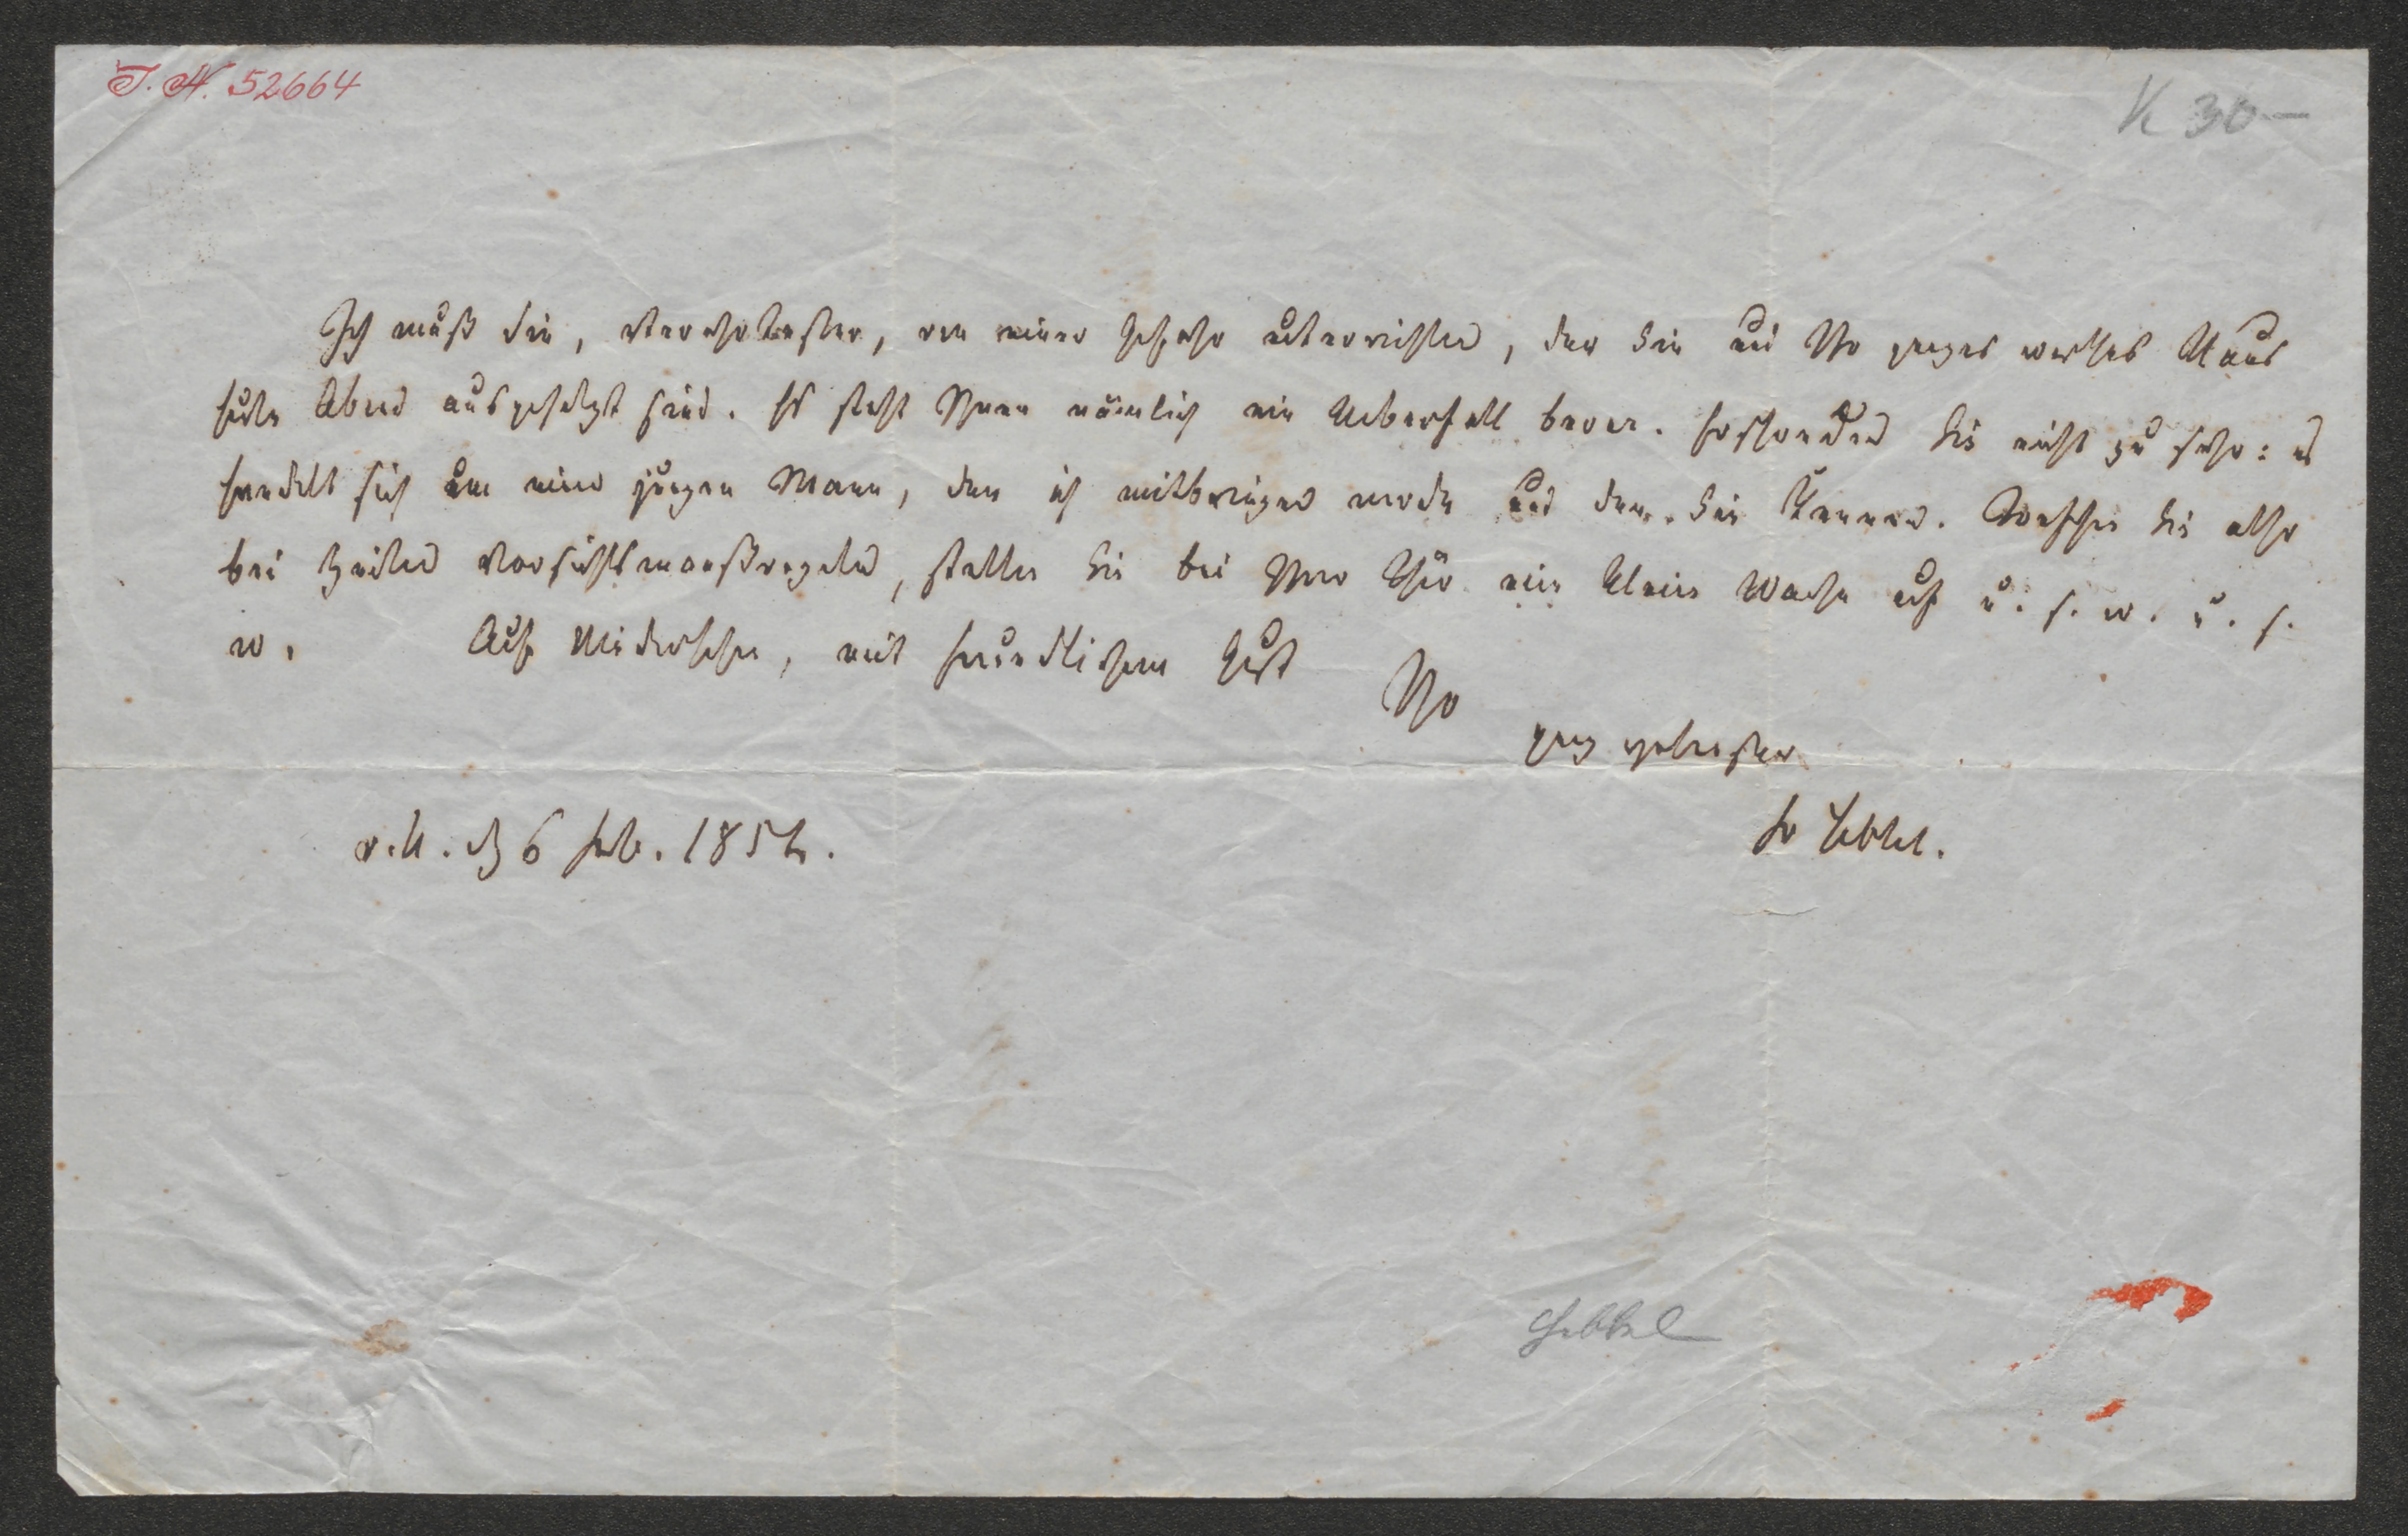 I. N. 52664
K 30 —
Ich muß Sie, Verehrtester, von einer Gefahr unterrichten, der Sie und Ihr ganzes werthes Haus
heute Abend ausgesetzt sind. Es steht Ihnen nämlich ein Ueberfall bevor. Erschrecken Sie nicht zu sehr: es
handelt sich um einen jungen Mann, den ich mitbringen werde und den Sie kennen. Treffen Sie also
bei Zeiten Vorsichtsmaaßregeln, stellen Sie bei Ihrer Thür eine kleine Wache auf u. s. w. u. s.
w. Auf Wiedersehen, mit freundlichem Gruß
Ihr
ganz ergebenster
Fr Hebbel.
v. H. d 6 Feb. 1854.
Hebbel